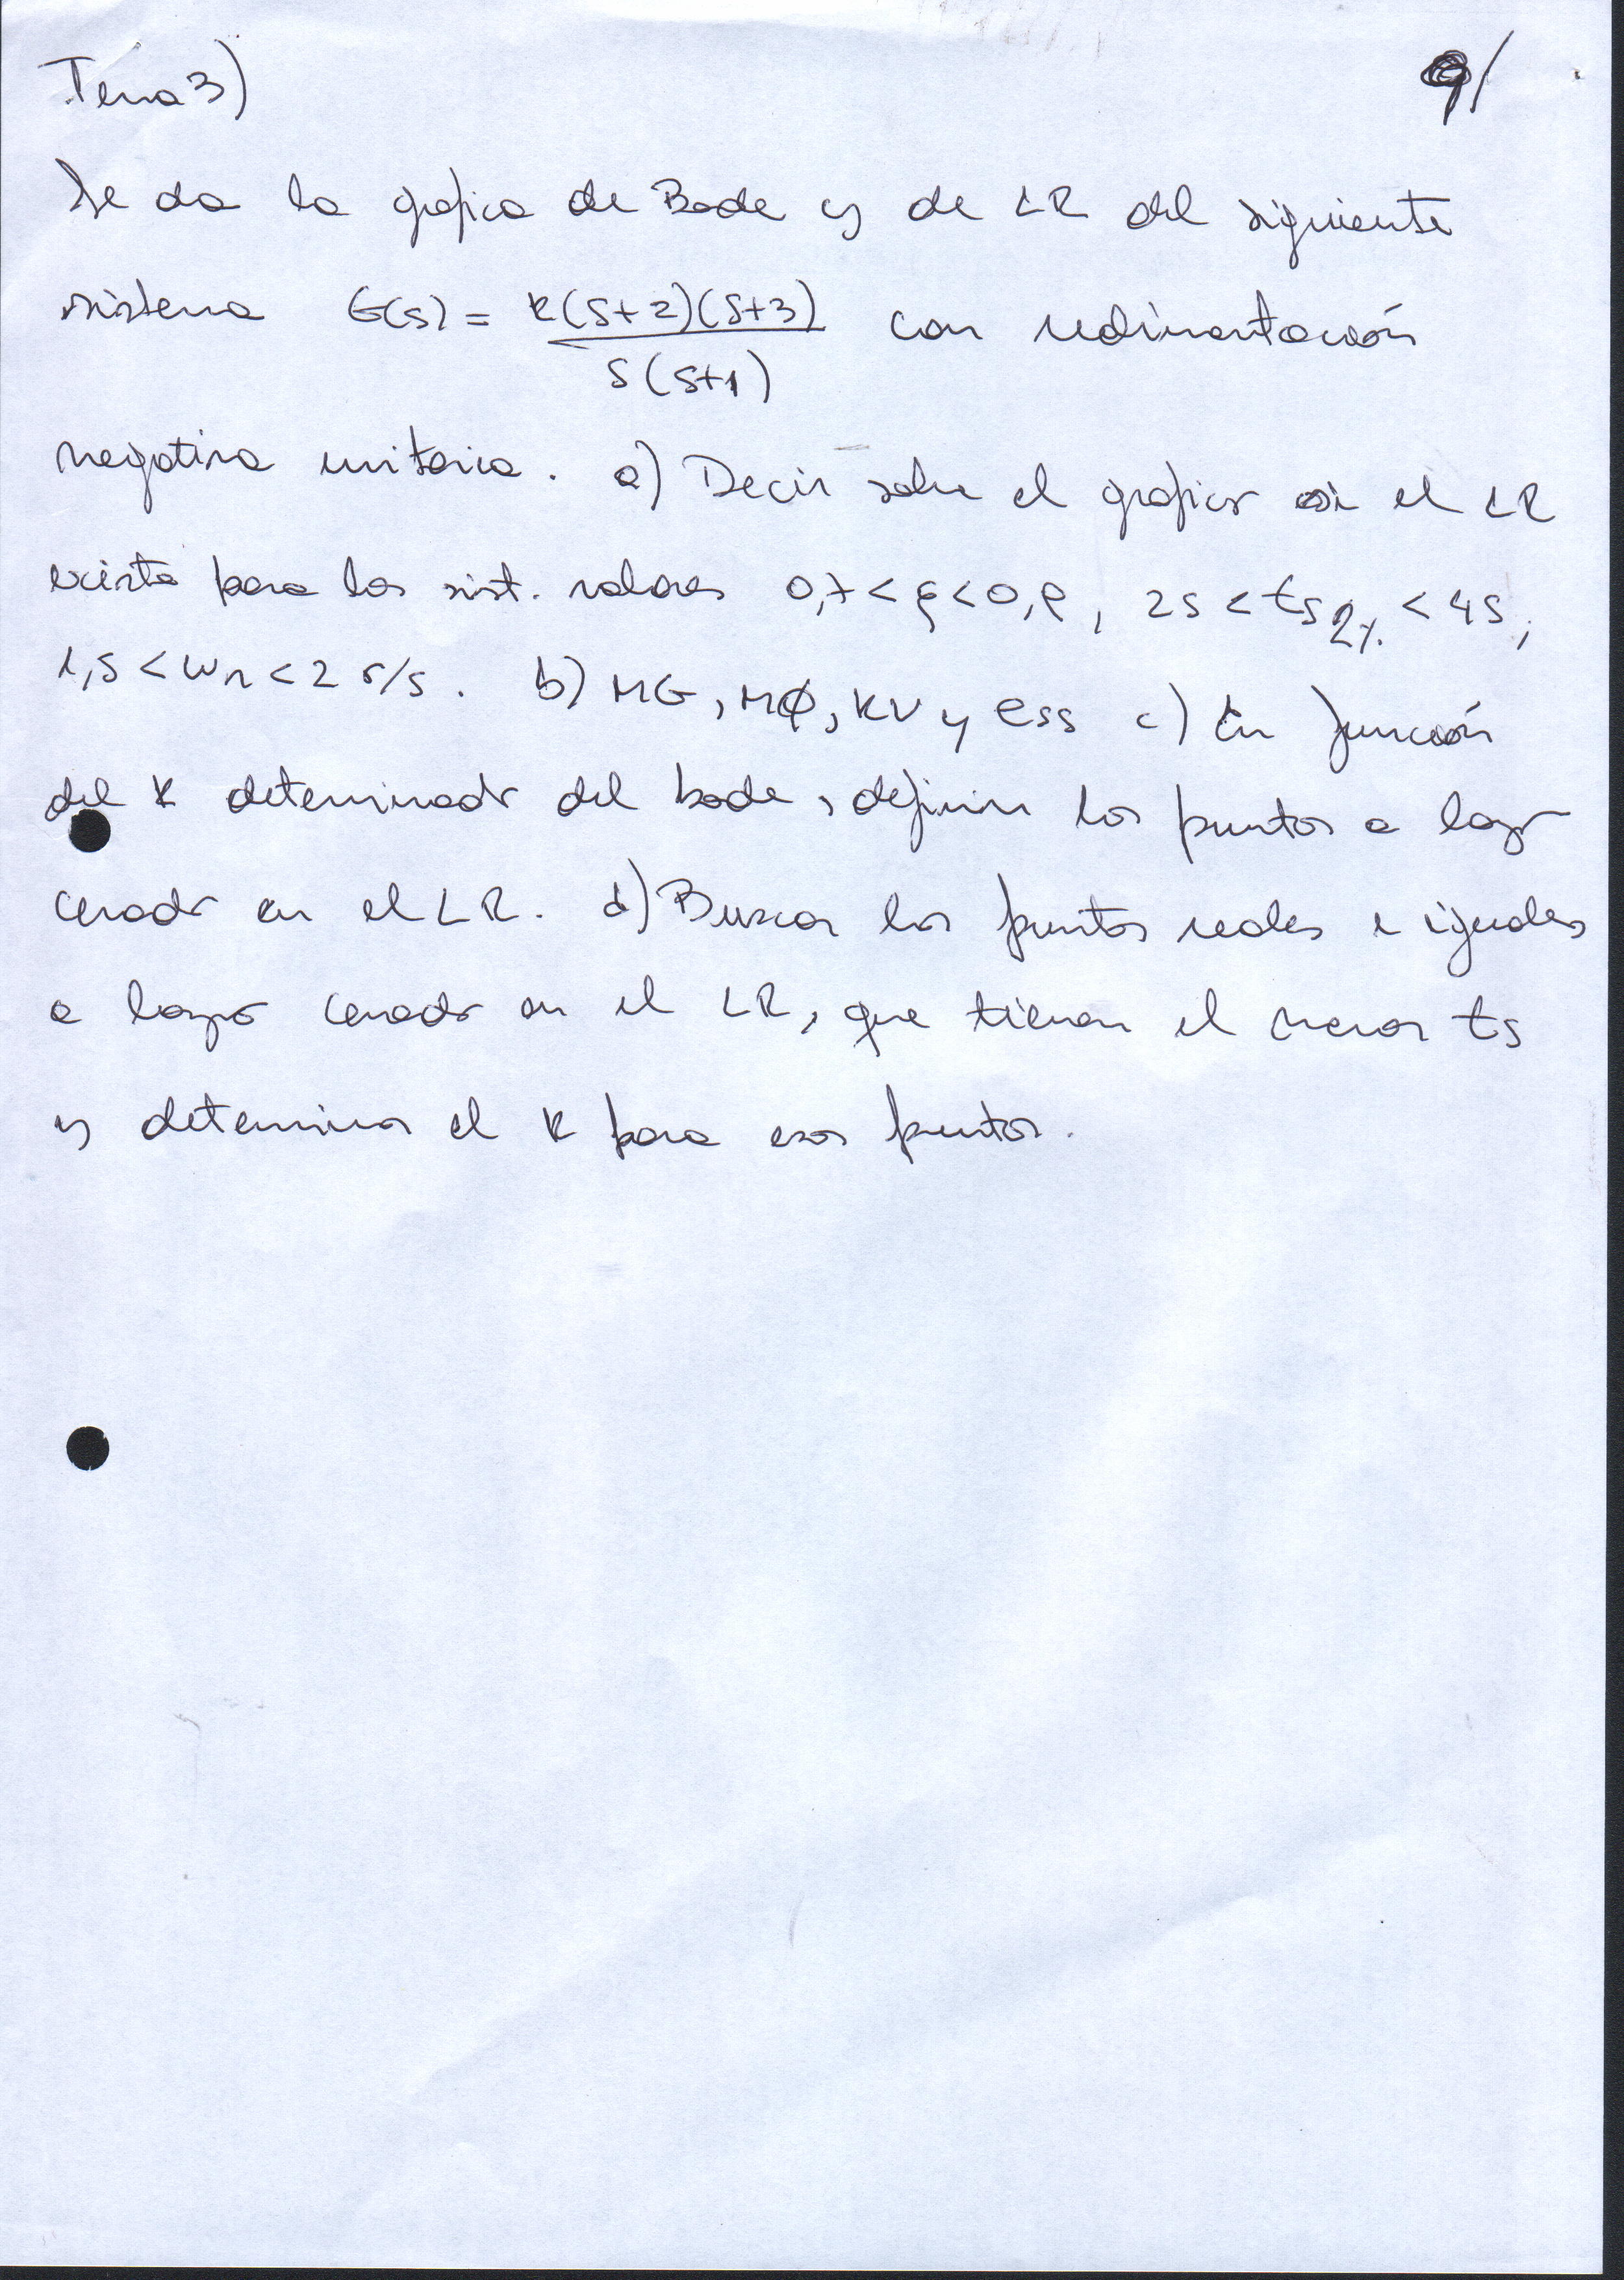 Tema 3)
9/
Se da la grafica de Bode y de LR del siguiente
sistema G(s) = K(S+2)(S+3) / S(S+1) con realimentación
negativa unitaria. a) Decir sobre el grafico si el LR
existe para los sist. valores 0,7<ξ<0,8, 2s < ts2%. < 4s,
1,5 < ωn < 2 r/s. b) MG, MΦ, KV y ess c) En función
del K determinado del bode, definir los puntos a lazo
cerrado en el LR. d) Buscar los puntos reales e iguales
a lazo cerrado en el LR, que tienen el menor ts
y determinar el K para esos puntos.